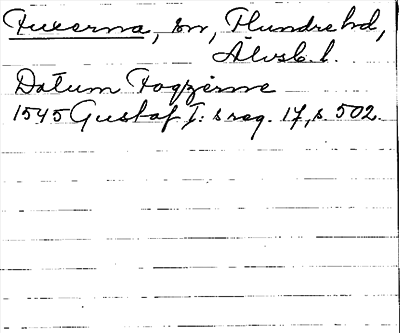 Fuxerna, sn, Flundre hd,
Älvsb. l.
Datum Fogzerne
1545 Gustaf I:s reg. 17, s. 502.